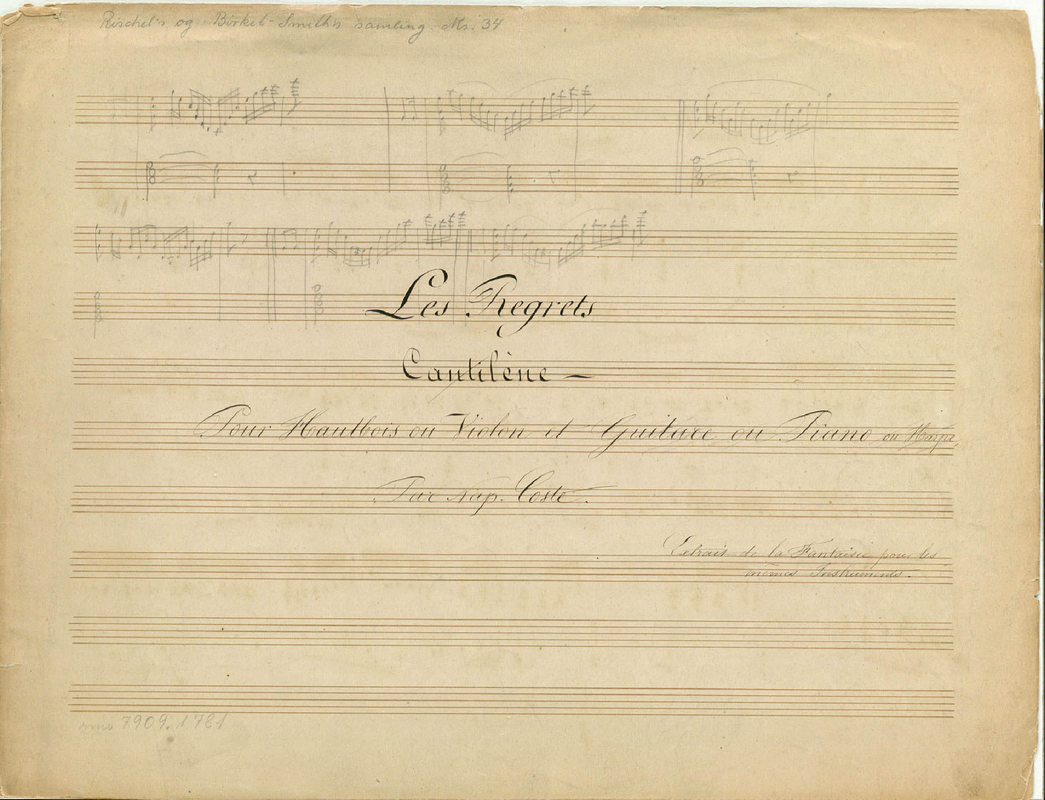 Rischel's og Birket-Smiths samling Ms. 34
Les Regrets
Cantilène —
Pour Hautbois ou Violon et Guitare ou Piano ou Harpe
Par Nap. Coste.
Extrait de la Fantaisie pour les
mêmes Instruments.
mu 7909.1781